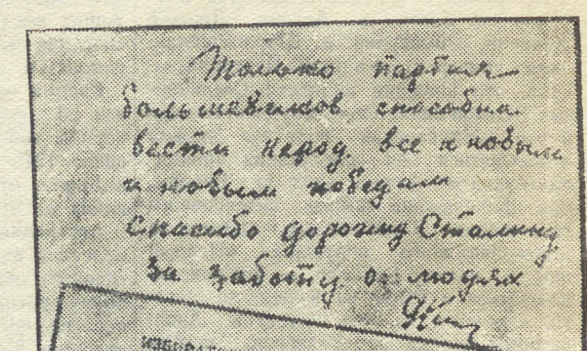 Только партия
большевиков способна
вести народ все к новым
и новым победам
спасибо дорогому Сталину
за заботу о людях